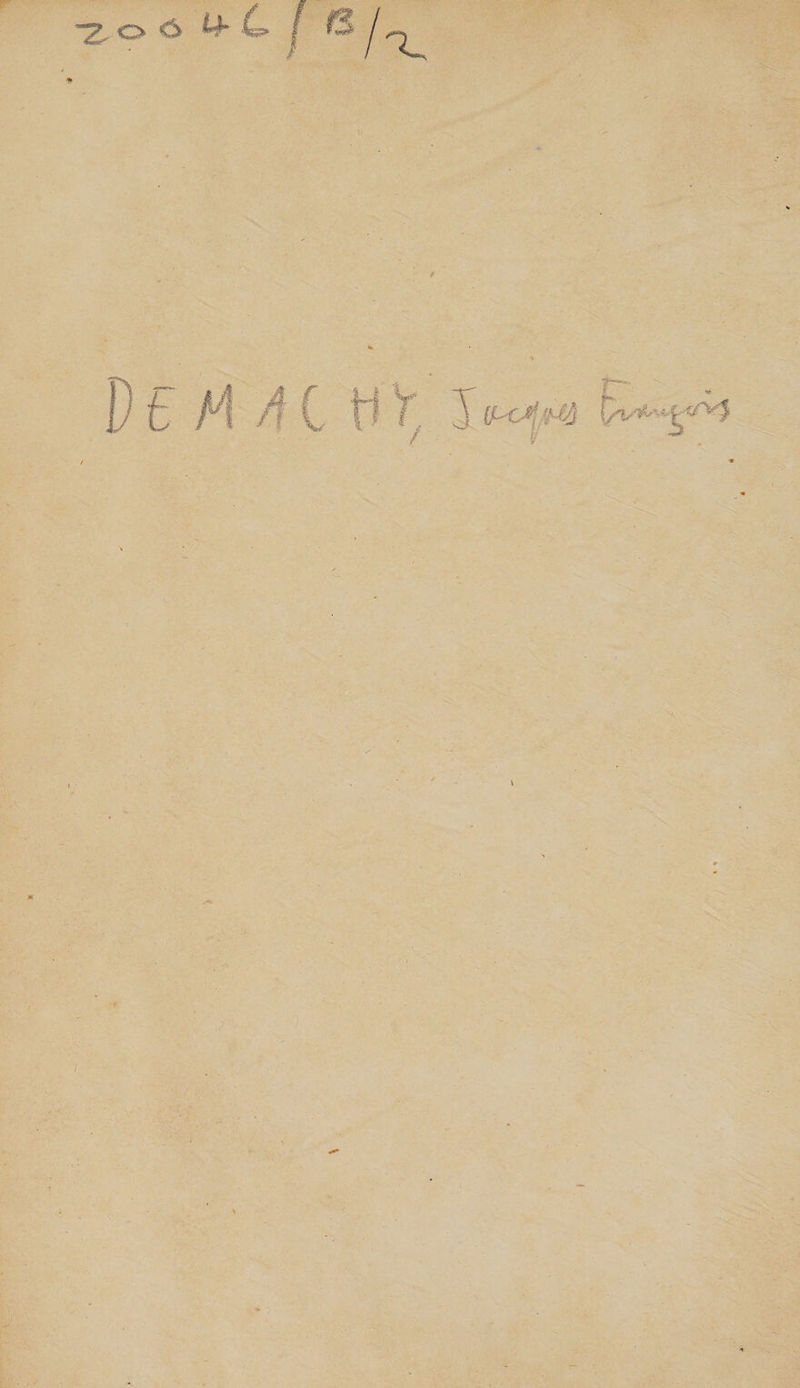 20046/B/2
DEMACHY, Jacques François